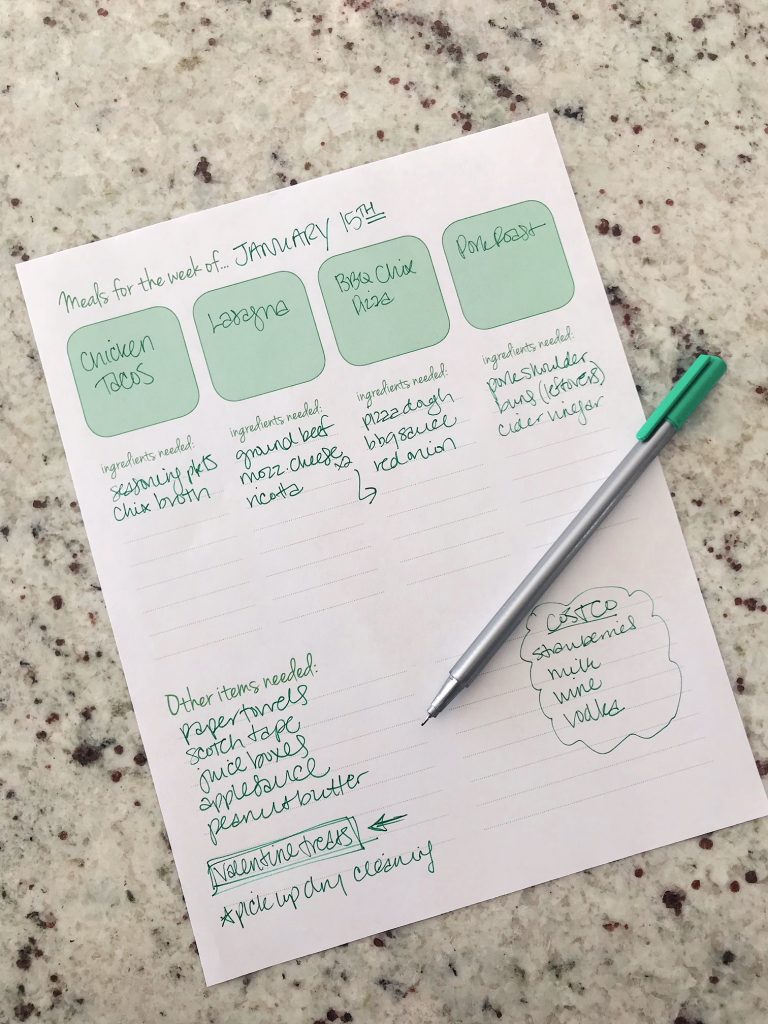 Meals for the week of... JANUARY 15TH
Chicken
Tacos
ingredients needed:
seasoning pkts
chix broth
Lasagna
ingredients needed:
ground beef
mozz. cheese x2
ricotta
BBQ Chix
Pizza
ingredients needed:
pizza dough
bbq sauce
red onion
Pork Roast
ingredients needed:
pork shoulder
buns (leftovers)
cider vinegar
Other items needed:
paper towels
scotch tape
juice boxes
applesauce
peanut butter
Valentine treats
*pick up dry cleaning
COSTCO
strawberries
milk
wine
vodka